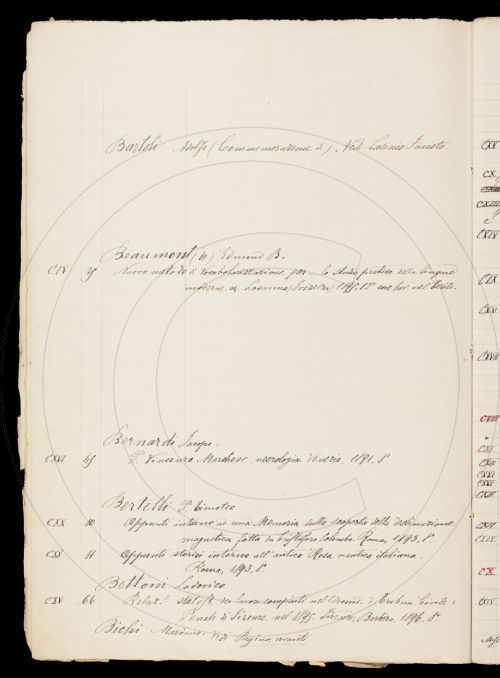 Bartoli Adolfo (Commemorazione di) Vedi Lasinio Fausto.
Beaumont (de) Edmond B.
CIV 25 Nuovo metodo di vocabolarizzazione per lo studio pratico delle lingue
moderne. Losanna (Svizzera) 1895. 8º con nel testo.
Bernardi Jacopo.
CXVI 45 P. Vincenzo Marchese, necrologia. Venezia, 1891. 8º
Bertelli P. Timoteo
CXX 10 Appunti intorno ad una Memoria sulla scoperta della declinazione
magnetica fatta da Cristoforo Colombo. Roma, 1893. 8º
CXX 11 Appunti storici intorno all'antica Rosa nautica italiana.
Roma, 1893. 8º
Bettoni Lodovico
CXV 66 Relaz. statist. dei lavori compiuti nel Tribun. Civile e
Penale di Firenze nel 1895. Firenze, Barbèra, 1896. 8º
Bichi Mariano. Vedi Regina
CXV
CX
CXIII
CXIV
CIX
CXVI
CXVII
CVIII
CXI
CXII
CXVI
CXVI
CXII
CXIV
CX
CXV